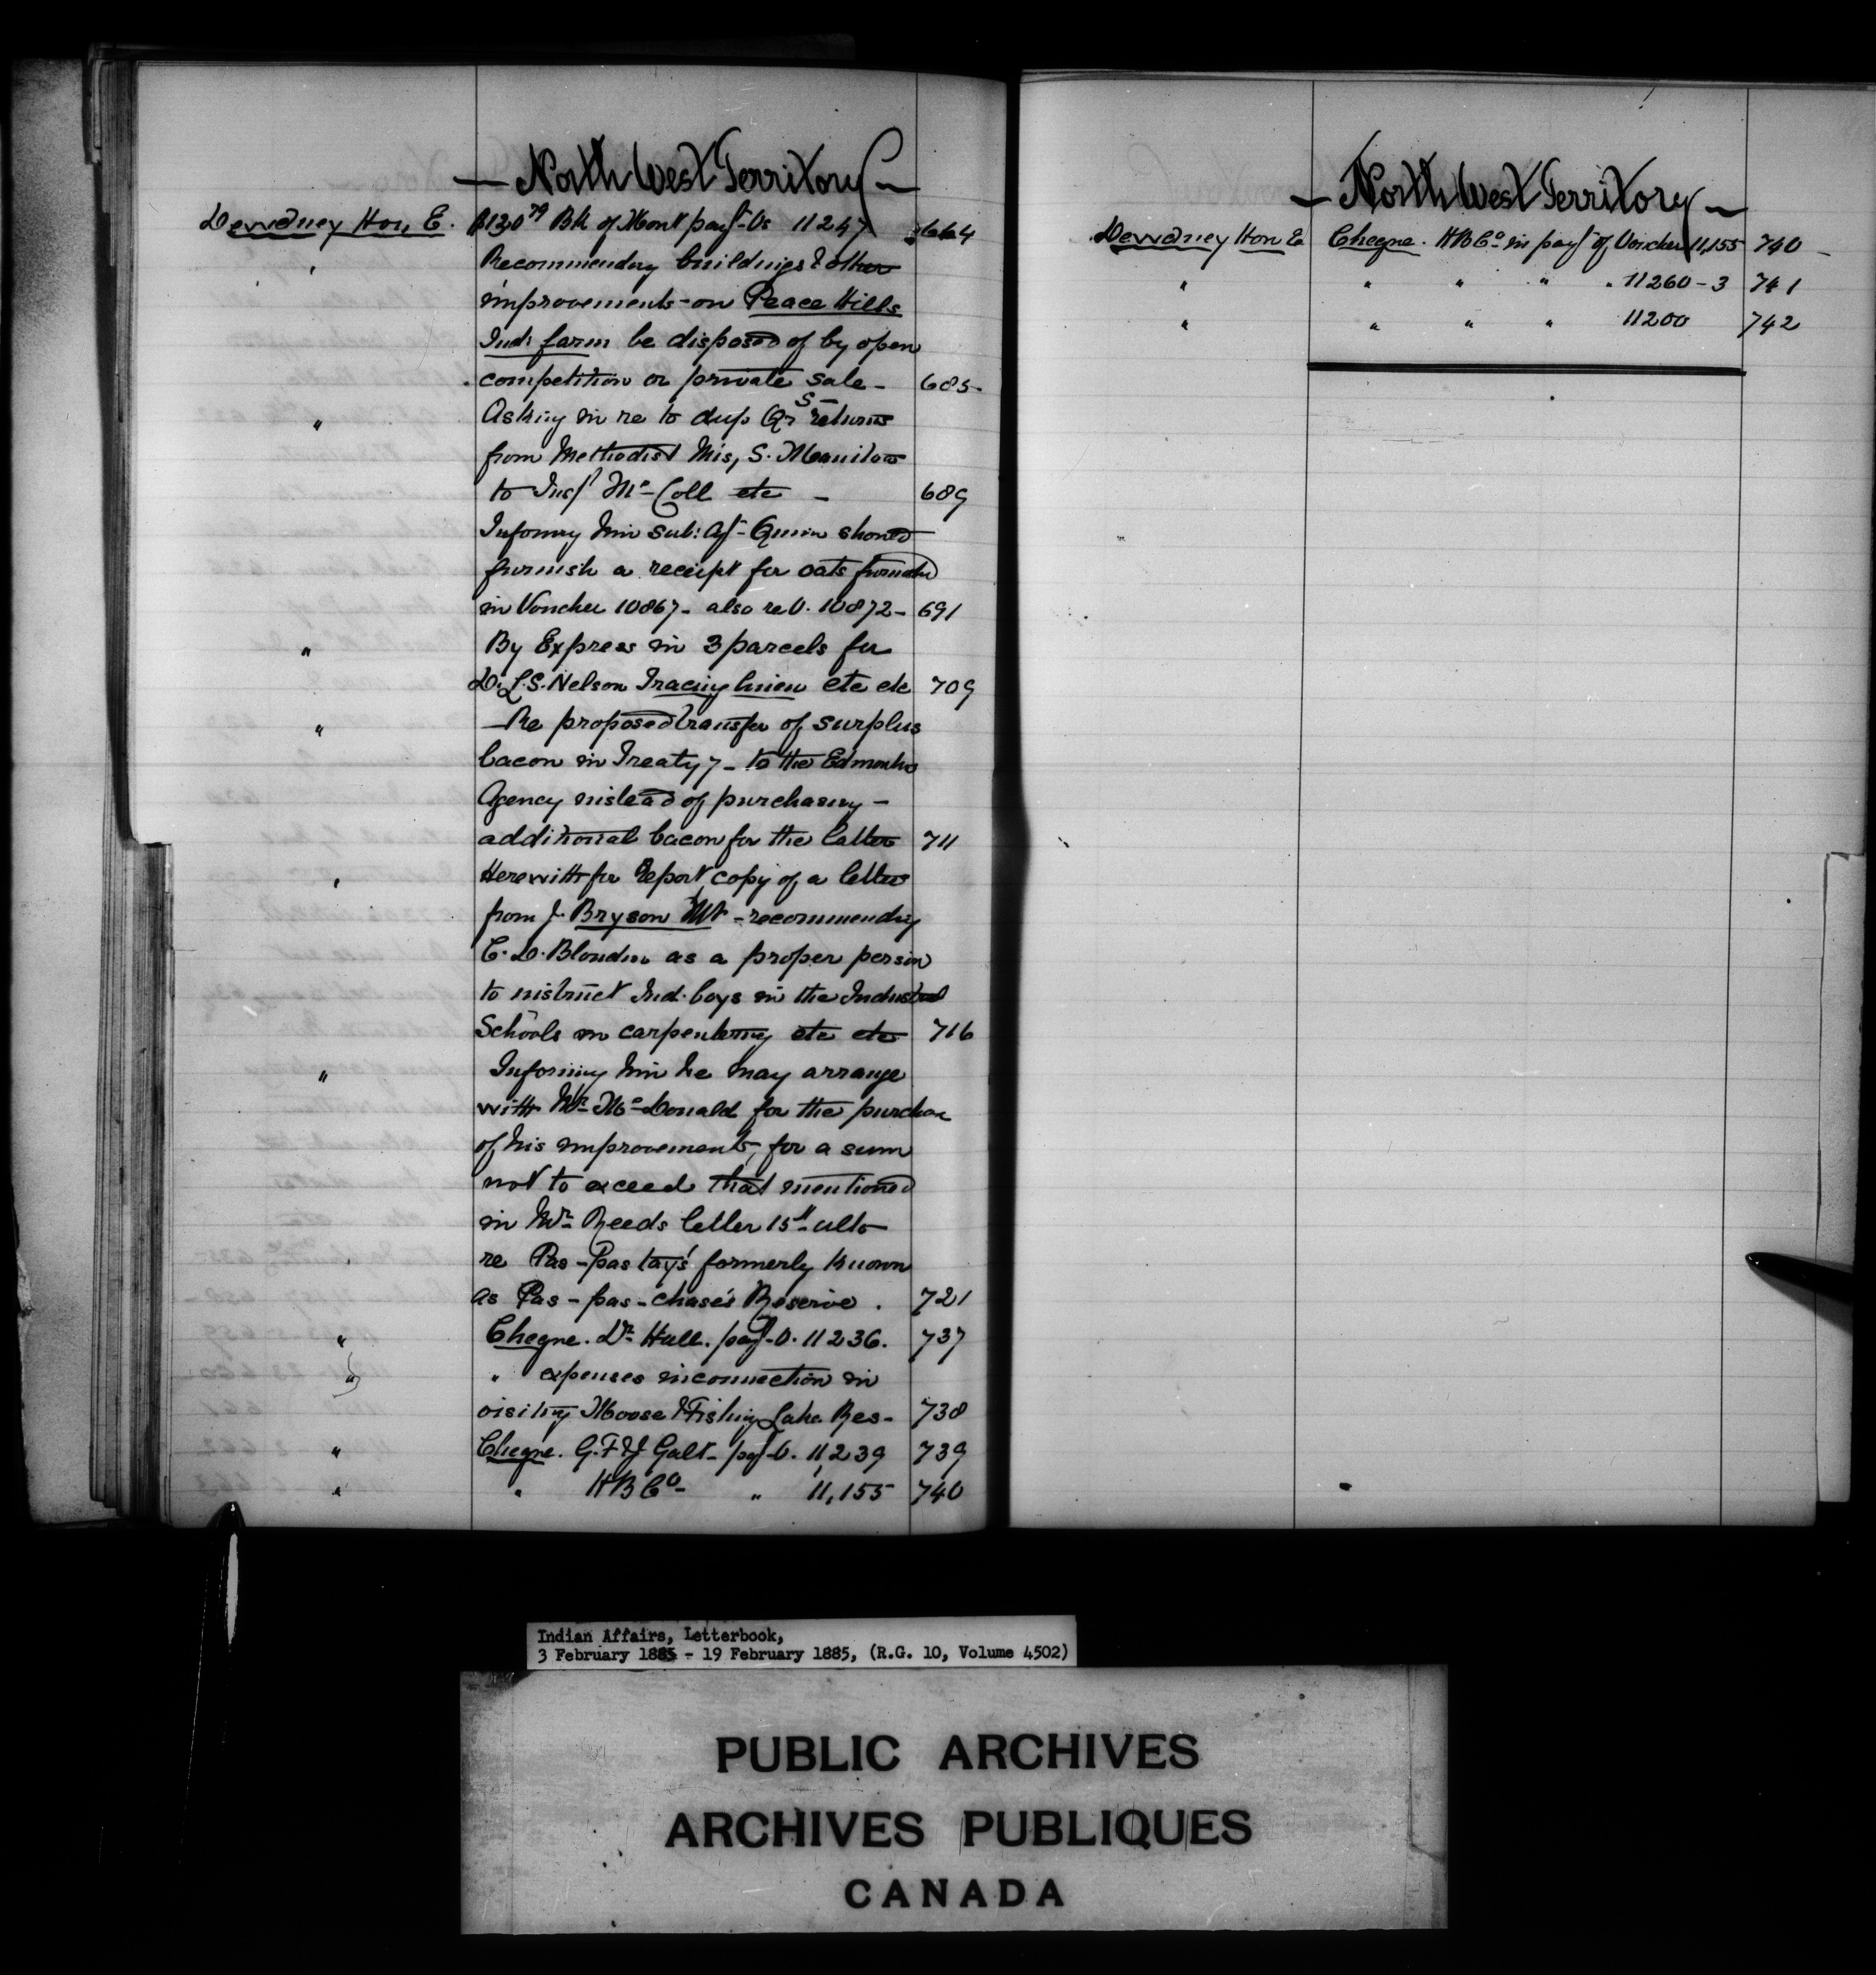 — North West Territory —
Dewdney Hon, E. $130 79 Bk of Mont pay't Vs 11247 664
" Recommendg buildings & other
improvements on Peace Hills
Ind: farm be disposed of by open
competition or private sale - 685
" Asking in re to dup Qrs returns
from Methodist Mis, S.
to Insp Mc Coll etc - 689
Informg him sub: Agt Quinn should
furnish a receipt for oats furnished
in Voucher 10867 - also re V. 10872 - 691
" By Express in 3 parcels for
D. L. S. Nelson Tracing linen etc etc 709
" Re proposed transfer of surplus
bacon in Treaty 7 - to the Edmonton
Agency instead of purchasing -
additional bacon for the latter 711
" Herewith for report copy of a letter
from J. Bryson - recommendg
C. D. Blondin as a proper person
to instruct Ind. boys in the Industrial
Schools in carpentering etc etc 716
" Informing him he may arrange
with Mr McDonald for the purchase
of his improvements, for a sum
not to exceed that mentioned
in Mr Reeds letter 15th ulto
re Pas-pas tay's formerly known
as Pas-pas-chase's Reserve. 721
" Cheqne. Dr Hall. pay't V. 11236. 737
" " expenses in connection in
visiting Moose & Fishing Lake Res - 738
" Cheqne. G. F & J Galt - pay't V. 11239 739
" " H B Co - " 11,155 740
— North West Territory —
Dewdney Hon E Cheqne. H B Co in pay't of Voucher 11,155 740 -
" " " " " 11260-3 741
" " " " 11200 742
Indian Affairs, Letterbook,
3 February 1885 - 19 February 1885, (R.G. 10, Volume 4502)
PUBLIC ARCHIVES
ARCHIVES PUBLIQUES
CANADA